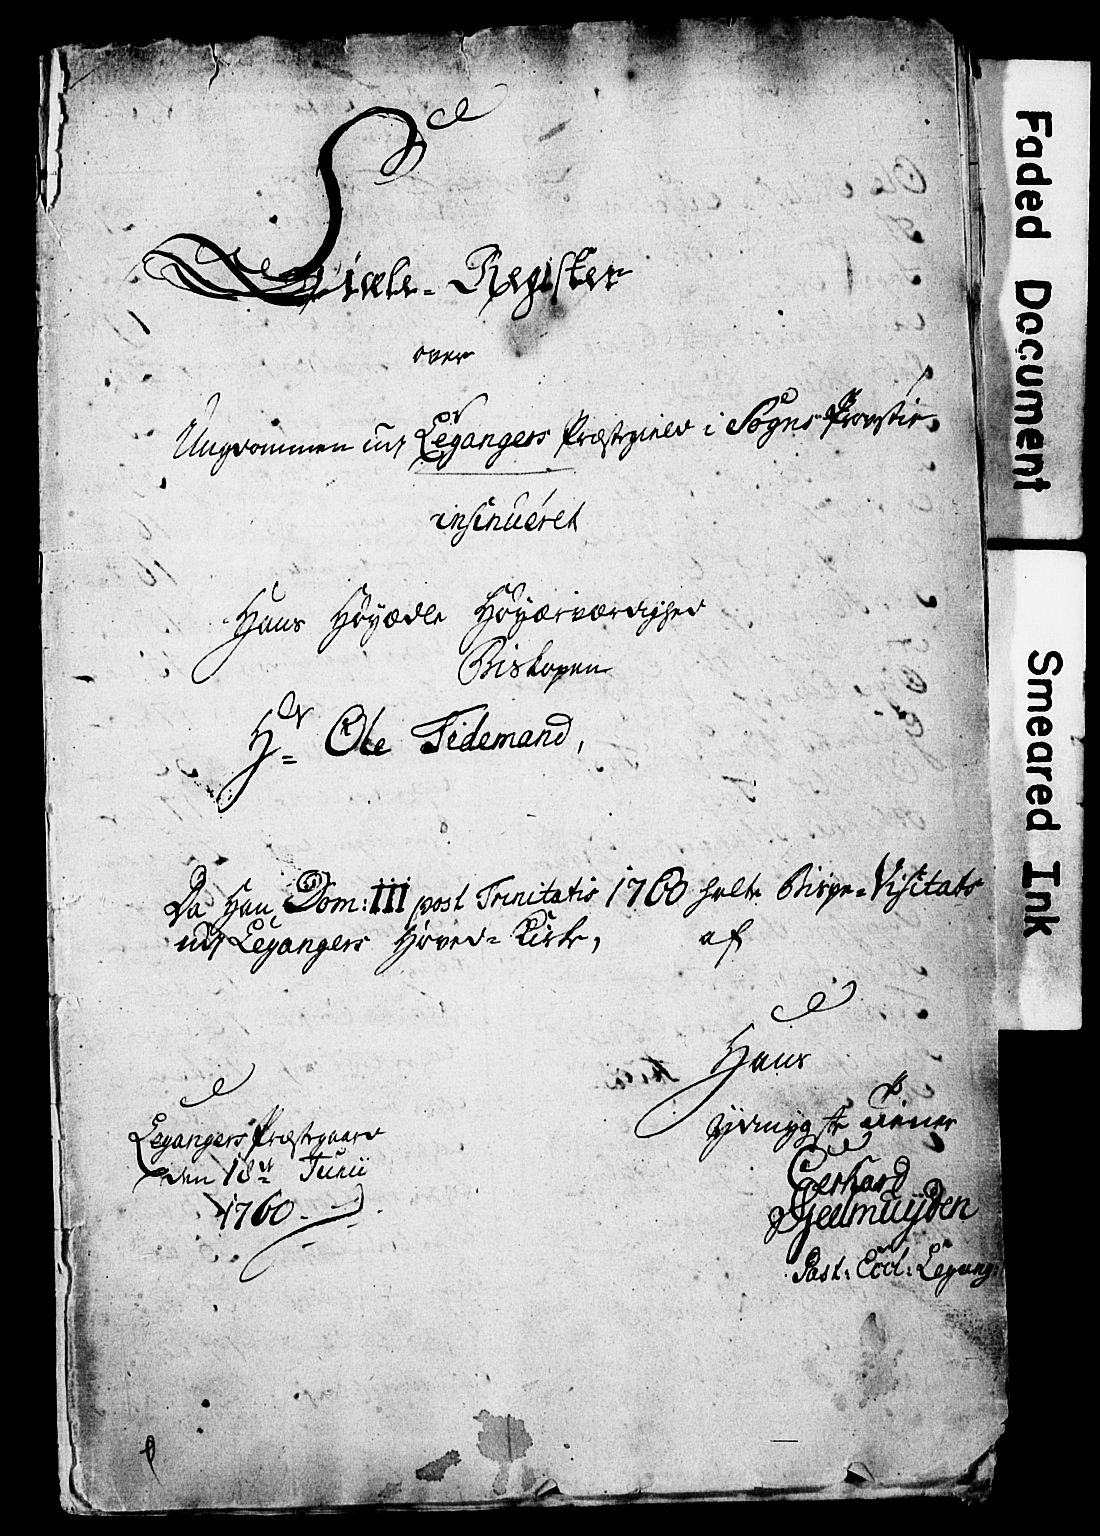 Siæle-Register
over
Ungdommen udj Legangers Præstegield i Sogns Provstie
insinueret
Hans Höyædle Höyærværdighed
Biskopen
Hr Ole Tidemand,
Da Han Dom: III post Trinitatis 1760 holte Bispe-Visitats
udj Legangers Hoved-Kirke, af
Hans
ydmygste tiener
Gerhard
Geelmuÿden
Past: Eccl: Legang:
Legangers Præstegaard
den 18de Junii
1760
Faded Document
Smeared Ink